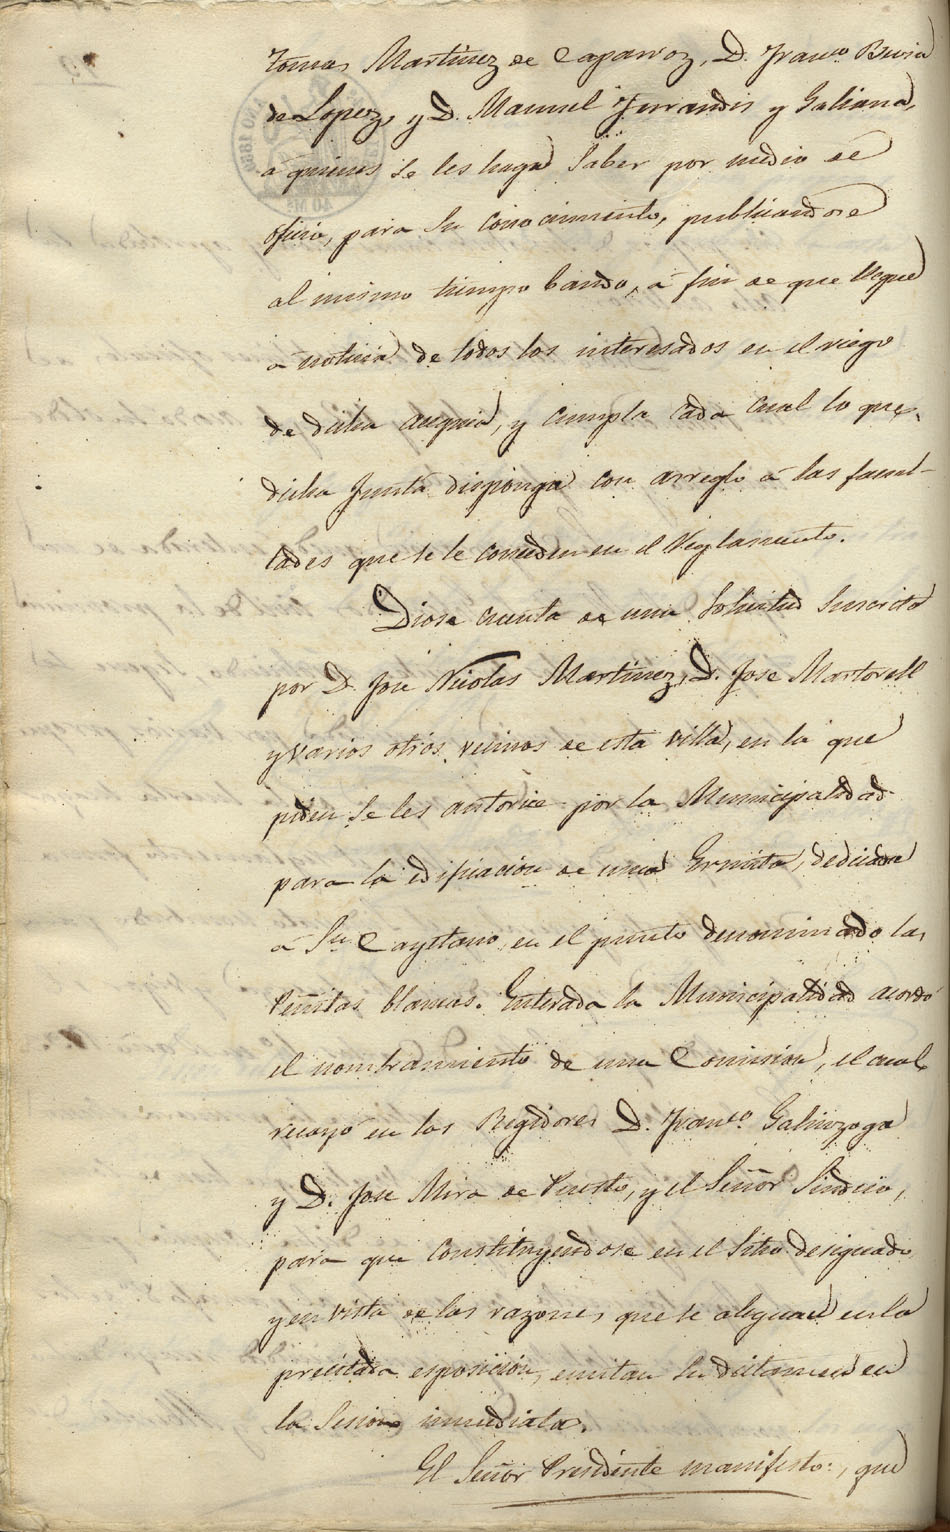 Tomas Martinez de Caparroz, D. Franco. Buria
de Lopez, y D. Manuel Ferrandis y Galiana,
á quienes se les haga saber por medio de
oficio, para su conocimiento, publicandose
al mismo tiempo bando, á fin de que llegue
á noticia de todos los interesados en el riego
de dicha acequia, y cumpla cada cual lo que
dicha Junta disponga con arreglo á las facul-
tades que se le conceden en el Reglamento.
Diose cuenta de una solicitud suscrita
por D. José Nicolas Martinez, D. Jose Martorell
y varios otros vecinos de esta villa, en la que
piden se les autorice por la Municipalidad
para la edificacion de una Ermita, dedicada
á Sn. Cayetano en el punto denominado las
Peñitas blancas. Enterada la Municipalidad acordó
el nombramiento de una Comision, el cual
recayó en los Regidores D. Franco. Galinzoga
y D. José Mira de Puesto, y el Señor Sindico,
para que constituyendose en el sitio designado
y en vista de las razones que se alegan en la
precitada esposicion, emitan su dictamen en
la Sesion inmediata.
El Señor Presidente manifesto: que
40 Ms